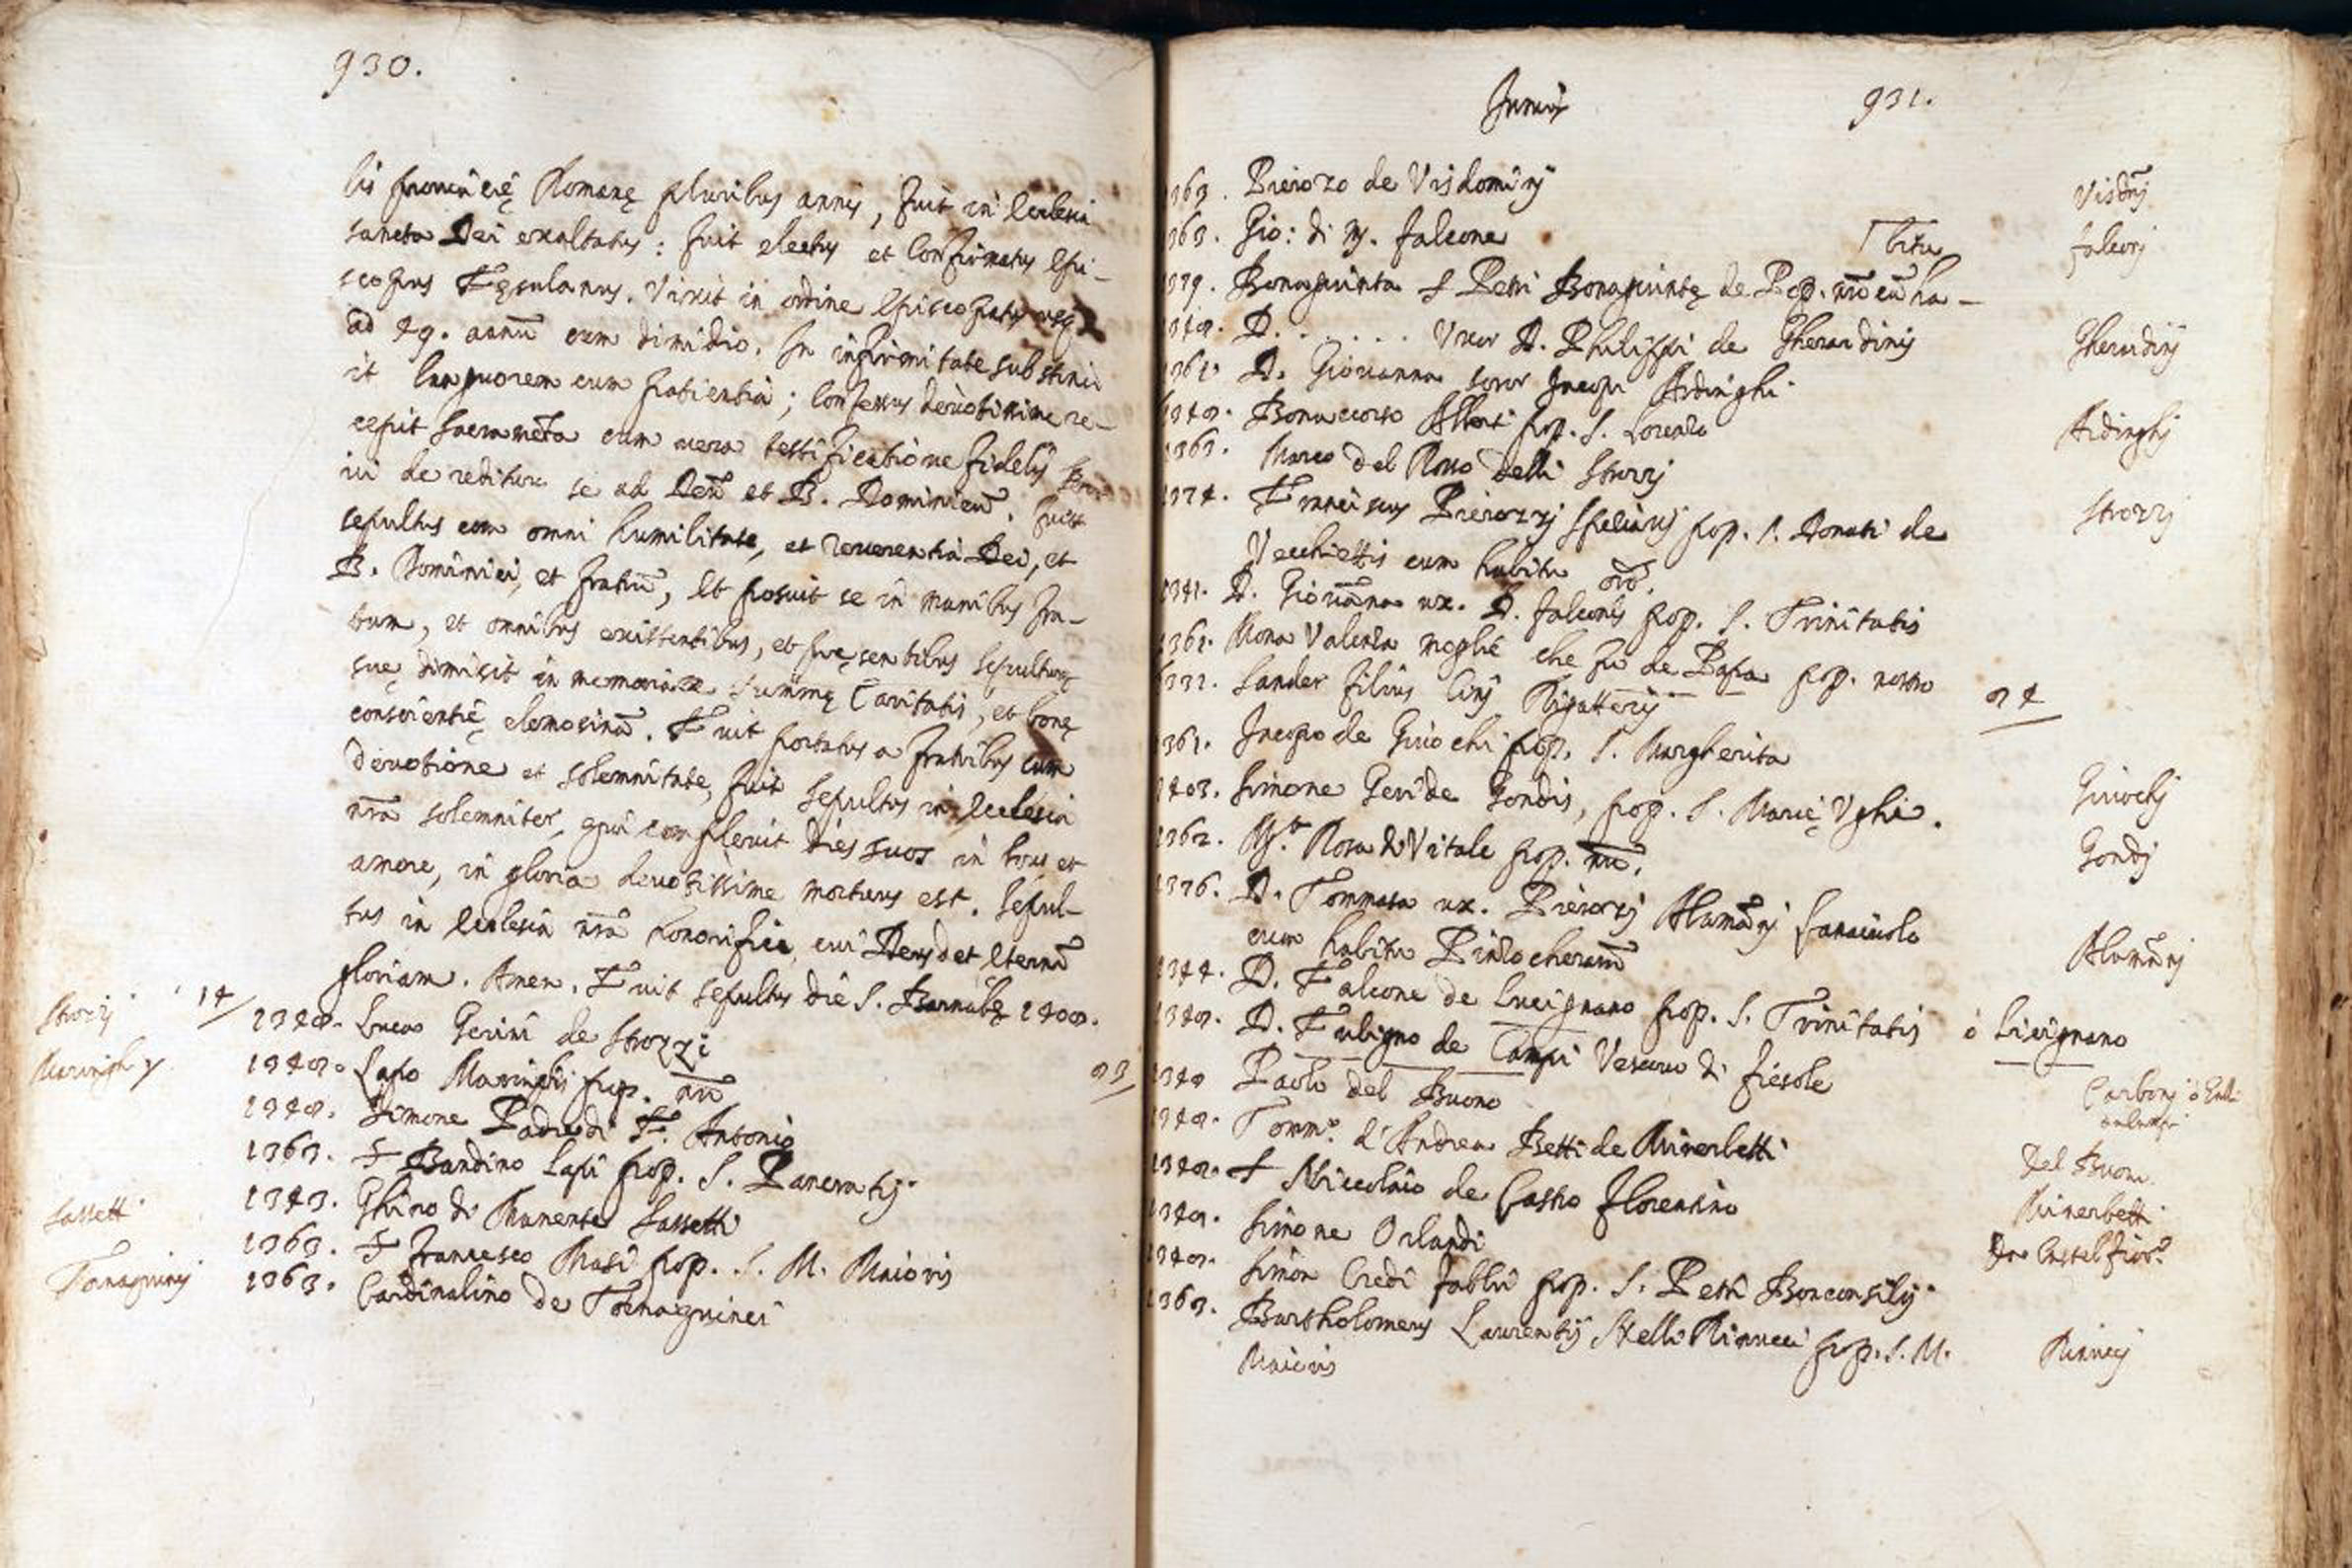 930.
lis provincię Romanę pluribus annis, fuit in Ecclesia
sancta Dei exaltatus: fuit electus et confirmatus Epi-
scopus Fęsulanus. Vixit in ordine Episcopatus usq
ad 29. annū cum dimidio. In infirmitate substinu
it languorem cum patientia; Confessus devotissime re-
cepit sacramēta cum vera testificatione fidelis
ivi de reditu se ad Deū et B. Dominicū. fuit
sepultus com omni humilitate, et reverentia Dei, et
B. Dominici, et fratrū, et posuit se in manibus fra-
trum, et omnibus existentibus, et pręsentibus sepulturę
suę dimisit in memoria summę Caritatis, et bonę
conscientię elemosinā. Fuit portatus a fratribus cum
devotione et solemnitate, fuit sepultus in Ecclesia
nr̄a solemniter, qui complevit dies suos in et
amore, in gloria devotissime mortuus est. Sepul-
tus in Ecclesia nr̄a honorifice, cui Deus det Eternā
gloriam. Amen. Fuit sepultus die S. Barnabę
Strozzi 14 Luca Gerini de Strozzi
Maringhi Lapo Maringhi pop. nr̄i
Simone Padre di F. Antonio
1363. F Bandino Lapi pop. S. Pancratij
Sassetti 1343. Ghino di Manente Sassetti
1363. F Francesco Masi pop. S. M. Maioris
Tornaquinci 1363. Cardinalino de Tornaquinci
Junij 931.
363. Pierozo de Visdominij Visdn̄ij
363. Gio: di M. falcone falconj
bitu
Bonaguinta S Petri Bonaguintę de Pop. nr̄o cū ha-
D. . . . . . Uxor D. Philippi de Gherardinis Gherardinij
D. Giovanna soror Jacopi Ardinghi Ardinghj
Bonaccorso Alberti pop. S. Lorenzo
363. Marco del Rosso delli Strozzj Strozzj
Franciscus Pierozzj Spetiarij pop. S. Donati de
Vecchiettis cum habitu
D. Giovāna ux. D. falconis pop. S. Trinitatis
Mona Valenza moglie che fu de Papa pop. nostro
Sander filius Cinj Rigatterij 24
Jacopo de Giuochi pop. S. Margherita Giuochj
Simone Geri de Gondis, pop. S. Marię Ughi. Gondj
Mr. Rosa di Vitale pop. nr̄i.
1376. D. Tommasa ux. Pierozzj Alamānj Lanaiuolo Alamānj
cum habitu Pinzocherarū
1344. D. Falcone de Lucignano pop. S. Trinitatis ò Livignano
23 D. Fuligno de Campi Vescovo di fiesole Carbonj ò
Paolo del Buono del Buono
Tommo. d'Andrea Betti de Minerbetti Minerbetti
F Niccolaio de Castro florentino Da Castel fiorno
Simone Orlandi
Simon Credi fabbri pop. S. Petri Bonconsilij
1363. Bartholomeus Laurentij Stelli Rinucci pop. S. M. Rinuccj
Maioris